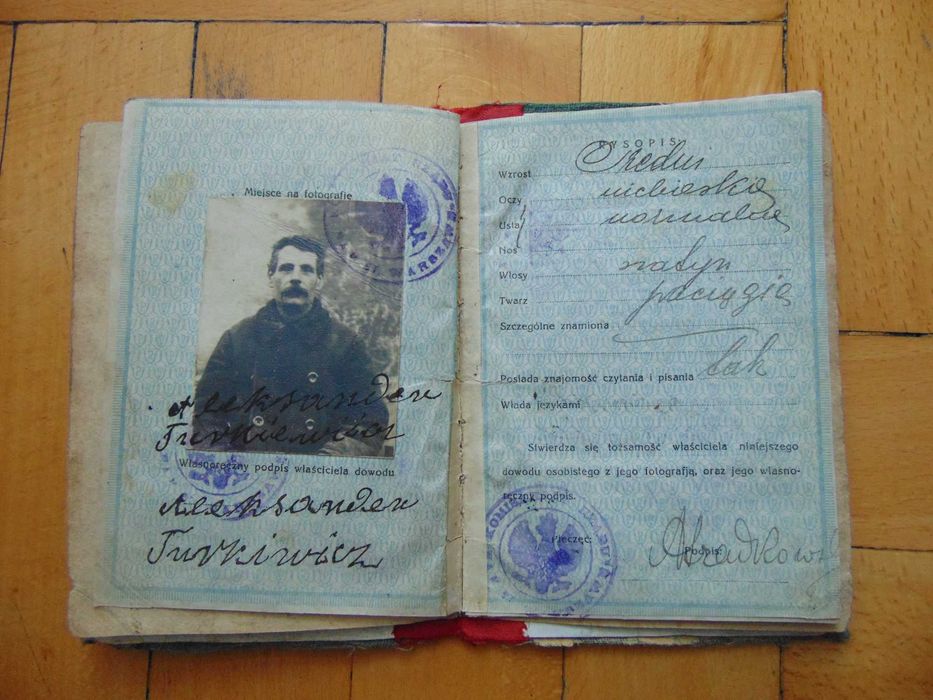 Miejsce na fotografie
Aleksander
Turkiewicz
Własnoręczny podpis właściciela dowodu
Aleksander
Turkiwicz
RYSOPIS
Wzrost średni
Oczy niebieskie
Usta normalne
Nos
Włosy szatyn
Twarz pociągła
Szczególne znamiona
Posiada znajomość czytania i pisania tak
Włada językami
Stwierdza się tożsamość właściciela niniejszego
dowodu osobistego z jego fotografją, oraz jego własno-
ręczny podpis.
Pieczęć:
Podpis: